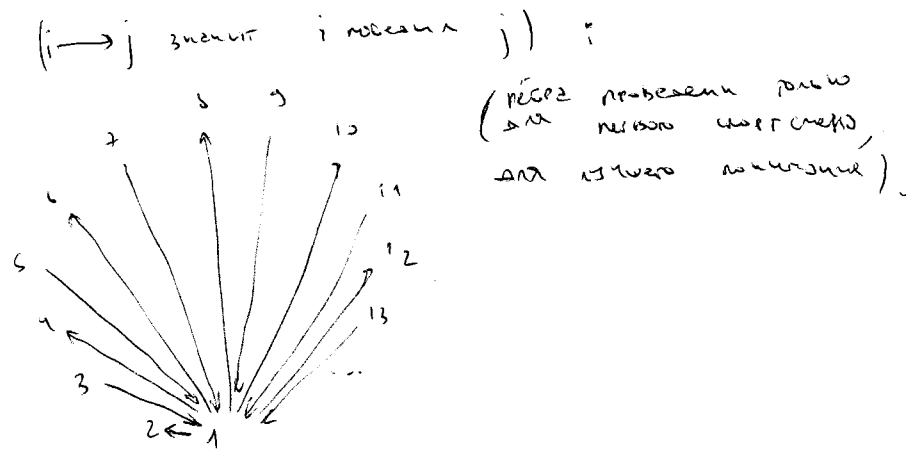 (i → j значит i победил j) :
(рёбра проведены только
для первого спортсмена,
для лучшего понимания).
8 9
7 10
6 11
5 12
4 13
3 ...
2 1